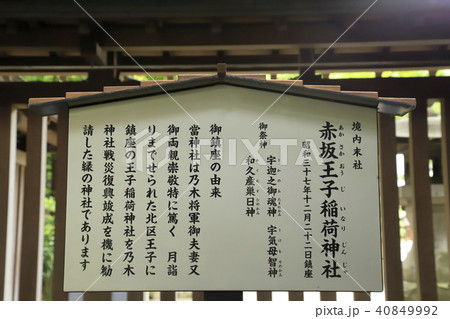 境内末社
赤坂王子稲荷神社
あかさかおうじいなりじんじゃ
昭和三十七年十二月二十二日鎮座
御祭神 宇迦之御魂神 宇気母智神
和久産巣日神
御鎮座の由来
当神社は乃木将軍御夫妻又
御両親崇敬特に篤く 月詣
りまでせられた北区王子に
鎮座の王子稲荷神社を乃木
神社戦災復興竣成を機に勧
請した縁の神社であります
pixta.jp - 40849992